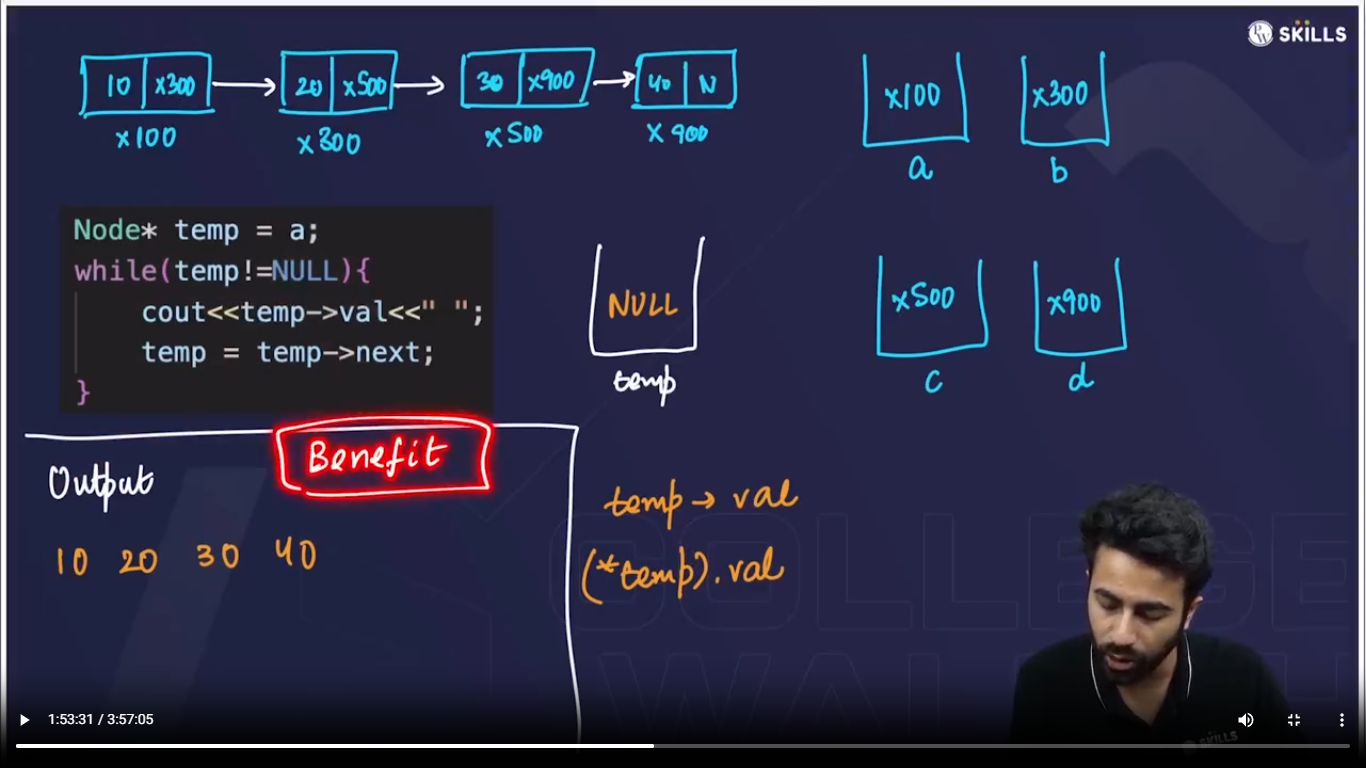 SKILLS
10 x300
20 x500
30 x900
40 N
x100
x300
x500
x900
x100
a
x300
b
Node* temp = a;
while(temp!=NULL){
cout<<temp->val<<" ";
temp = temp->next;
}
NULL
temp
x500
c
x900
d
Benefit
Output
10 20 30 40
temp → val
(*temp).val
COLLEGE
WALLAH
SKILLS
1:53:31 / 3:57:05